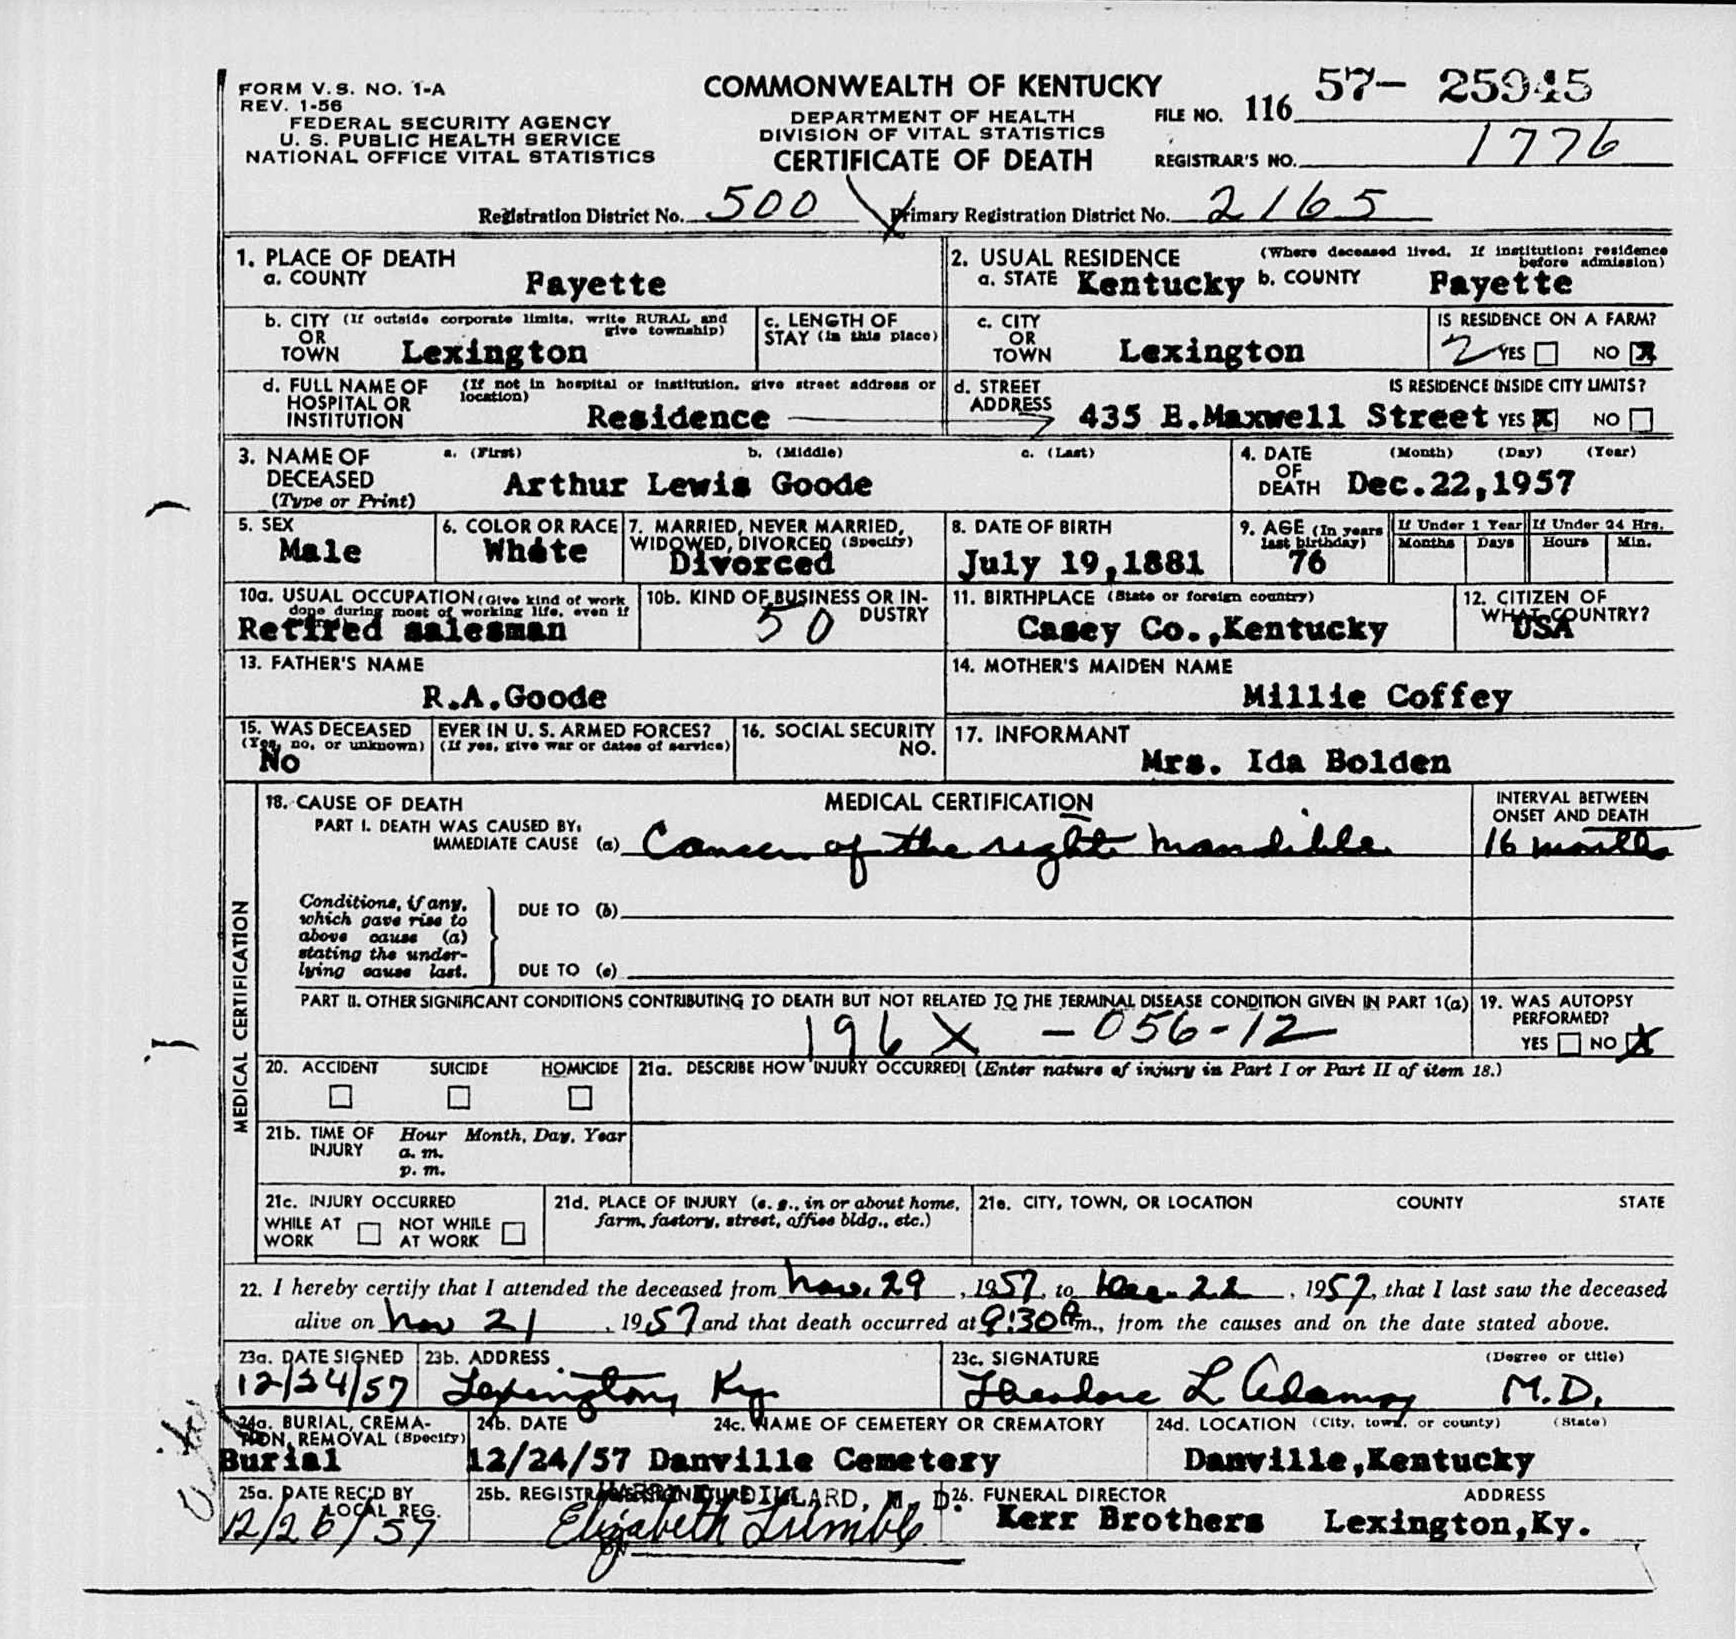 FORM V. S. NO. 1-A
REV. 1-56
FEDERAL SECURITY AGENCY
U. S. PUBLIC HEALTH SERVICE
NATIONAL OFFICE VITAL STATISTICS
COMMONWEALTH OF KENTUCKY
DEPARTMENT OF HEALTH
DIVISION OF VITAL STATISTICS
CERTIFICATE OF DEATH
FILE NO. 116 57- 25945
REGISTRAR'S NO. 1776
Registration District No. 500 Primary Registration District No. 2165
1. PLACE OF DEATH
a. COUNTY Fayette
2. USUAL RESIDENCE (Where deceased lived. If institution: residence before admission)
a. STATE Kentucky b. COUNTY Fayette
b. CITY (If outside corporate limits, write RURAL and give township)
OR
TOWN Lexington
c. LENGTH OF STAY (in this place)
c. CITY
OR
TOWN Lexington
IS RESIDENCE ON A FARM?
2 YES NO X
d. FULL NAME OF HOSPITAL OR INSTITUTION (If not in hospital or institution, give street address or location)
Residence
d. STREET ADDRESS 435 E.Maxwell Street
IS RESIDENCE INSIDE CITY LIMITS?
YES X NO
3. NAME OF DECEASED (Type or Print)
a. (First) b. (Middle) c. (Last)
Arthur Lewis Goode
4. DATE OF DEATH (Month) (Day) (Year)
Dec.22,1957
5. SEX
Male
6. COLOR OR RACE
White
7. MARRIED, NEVER MARRIED, WIDOWED, DIVORCED (Specify)
Divorced
8. DATE OF BIRTH
July 19,1881
9. AGE (In years last birthday)
76
If Under 1 Year If Under 24 Hrs.
Months Days Hours Min.
10a. USUAL OCCUPATION (Give kind of work done during most of working life, even if
Retired salesman
10b. KIND OF BUSINESS OR INDUSTRY
50
11. BIRTHPLACE (State or foreign country)
Casey Co.,Kentucky
12. CITIZEN OF WHAT COUNTRY?
USA
13. FATHER'S NAME
R.A.Goode
14. MOTHER'S MAIDEN NAME
Millie Coffey
15. WAS DECEASED EVER IN U. S. ARMED FORCES?
(Yes, no, or unknown) (If yes, give war or dates of service)
No
16. SOCIAL SECURITY NO.
17. INFORMANT
Mrs. Ida Bolden
MEDICAL CERTIFICATION
18. CAUSE OF DEATH
MEDICAL CERTIFICATION
INTERVAL BETWEEN ONSET AND DEATH
PART I. DEATH WAS CAUSED BY:
IMMEDIATE CAUSE (a) Cancer of the right mandible 16 months
Conditions, if any, which gave rise to above cause (a) stating the underlying cause last.
DUE TO (b)
DUE TO (c)
PART II. OTHER SIGNIFICANT CONDITIONS CONTRIBUTING TO DEATH BUT NOT RELATED TO THE TERMINAL DISEASE CONDITION GIVEN IN PART 1(a)
196X -056-12
19. WAS AUTOPSY PERFORMED?
YES NO X
20. ACCIDENT SUICIDE HOMICIDE
21a. DESCRIBE HOW INJURY OCCURRED (Enter nature of injury in Part I or Part II of item 18.)
21b. TIME OF INJURY Hour Month, Day, Year
a. m.
p. m.
21c. INJURY OCCURRED
WHILE AT WORK NOT WHILE AT WORK
21d. PLACE OF INJURY (e. g., in or about home, farm, factory, street, office bldg., etc.)
21e. CITY, TOWN, OR LOCATION COUNTY STATE
22. I hereby certify that I attended the deceased from Nov. 29, 1957, to Dec. 22, 1957, that I last saw the deceased
alive on Nov 21, 1957 and that death occurred at 9:30 A m., from the causes and on the date stated above.
23a. DATE SIGNED
12/24/57
23b. ADDRESS
Lexington, Ky.
23c. SIGNATURE (Degree or title)
Theodore L Adams M.D.
24a. BURIAL, CREMATION, REMOVAL (Specify)
Burial
24b. DATE
12/24/57
24c. NAME OF CEMETERY OR CREMATORY
Danville Cemetery
24d. LOCATION (City, town, or county) (State)
Danville,Kentucky
25a. DATE REC'D BY LOCAL REG.
12/26/57
25b. REGISTRAR'S SIGNATURE
DILLARD, M. D.
Elizabeth Trimble
26. FUNERAL DIRECTOR ADDRESS
Kerr Brothers Lexington,Ky.